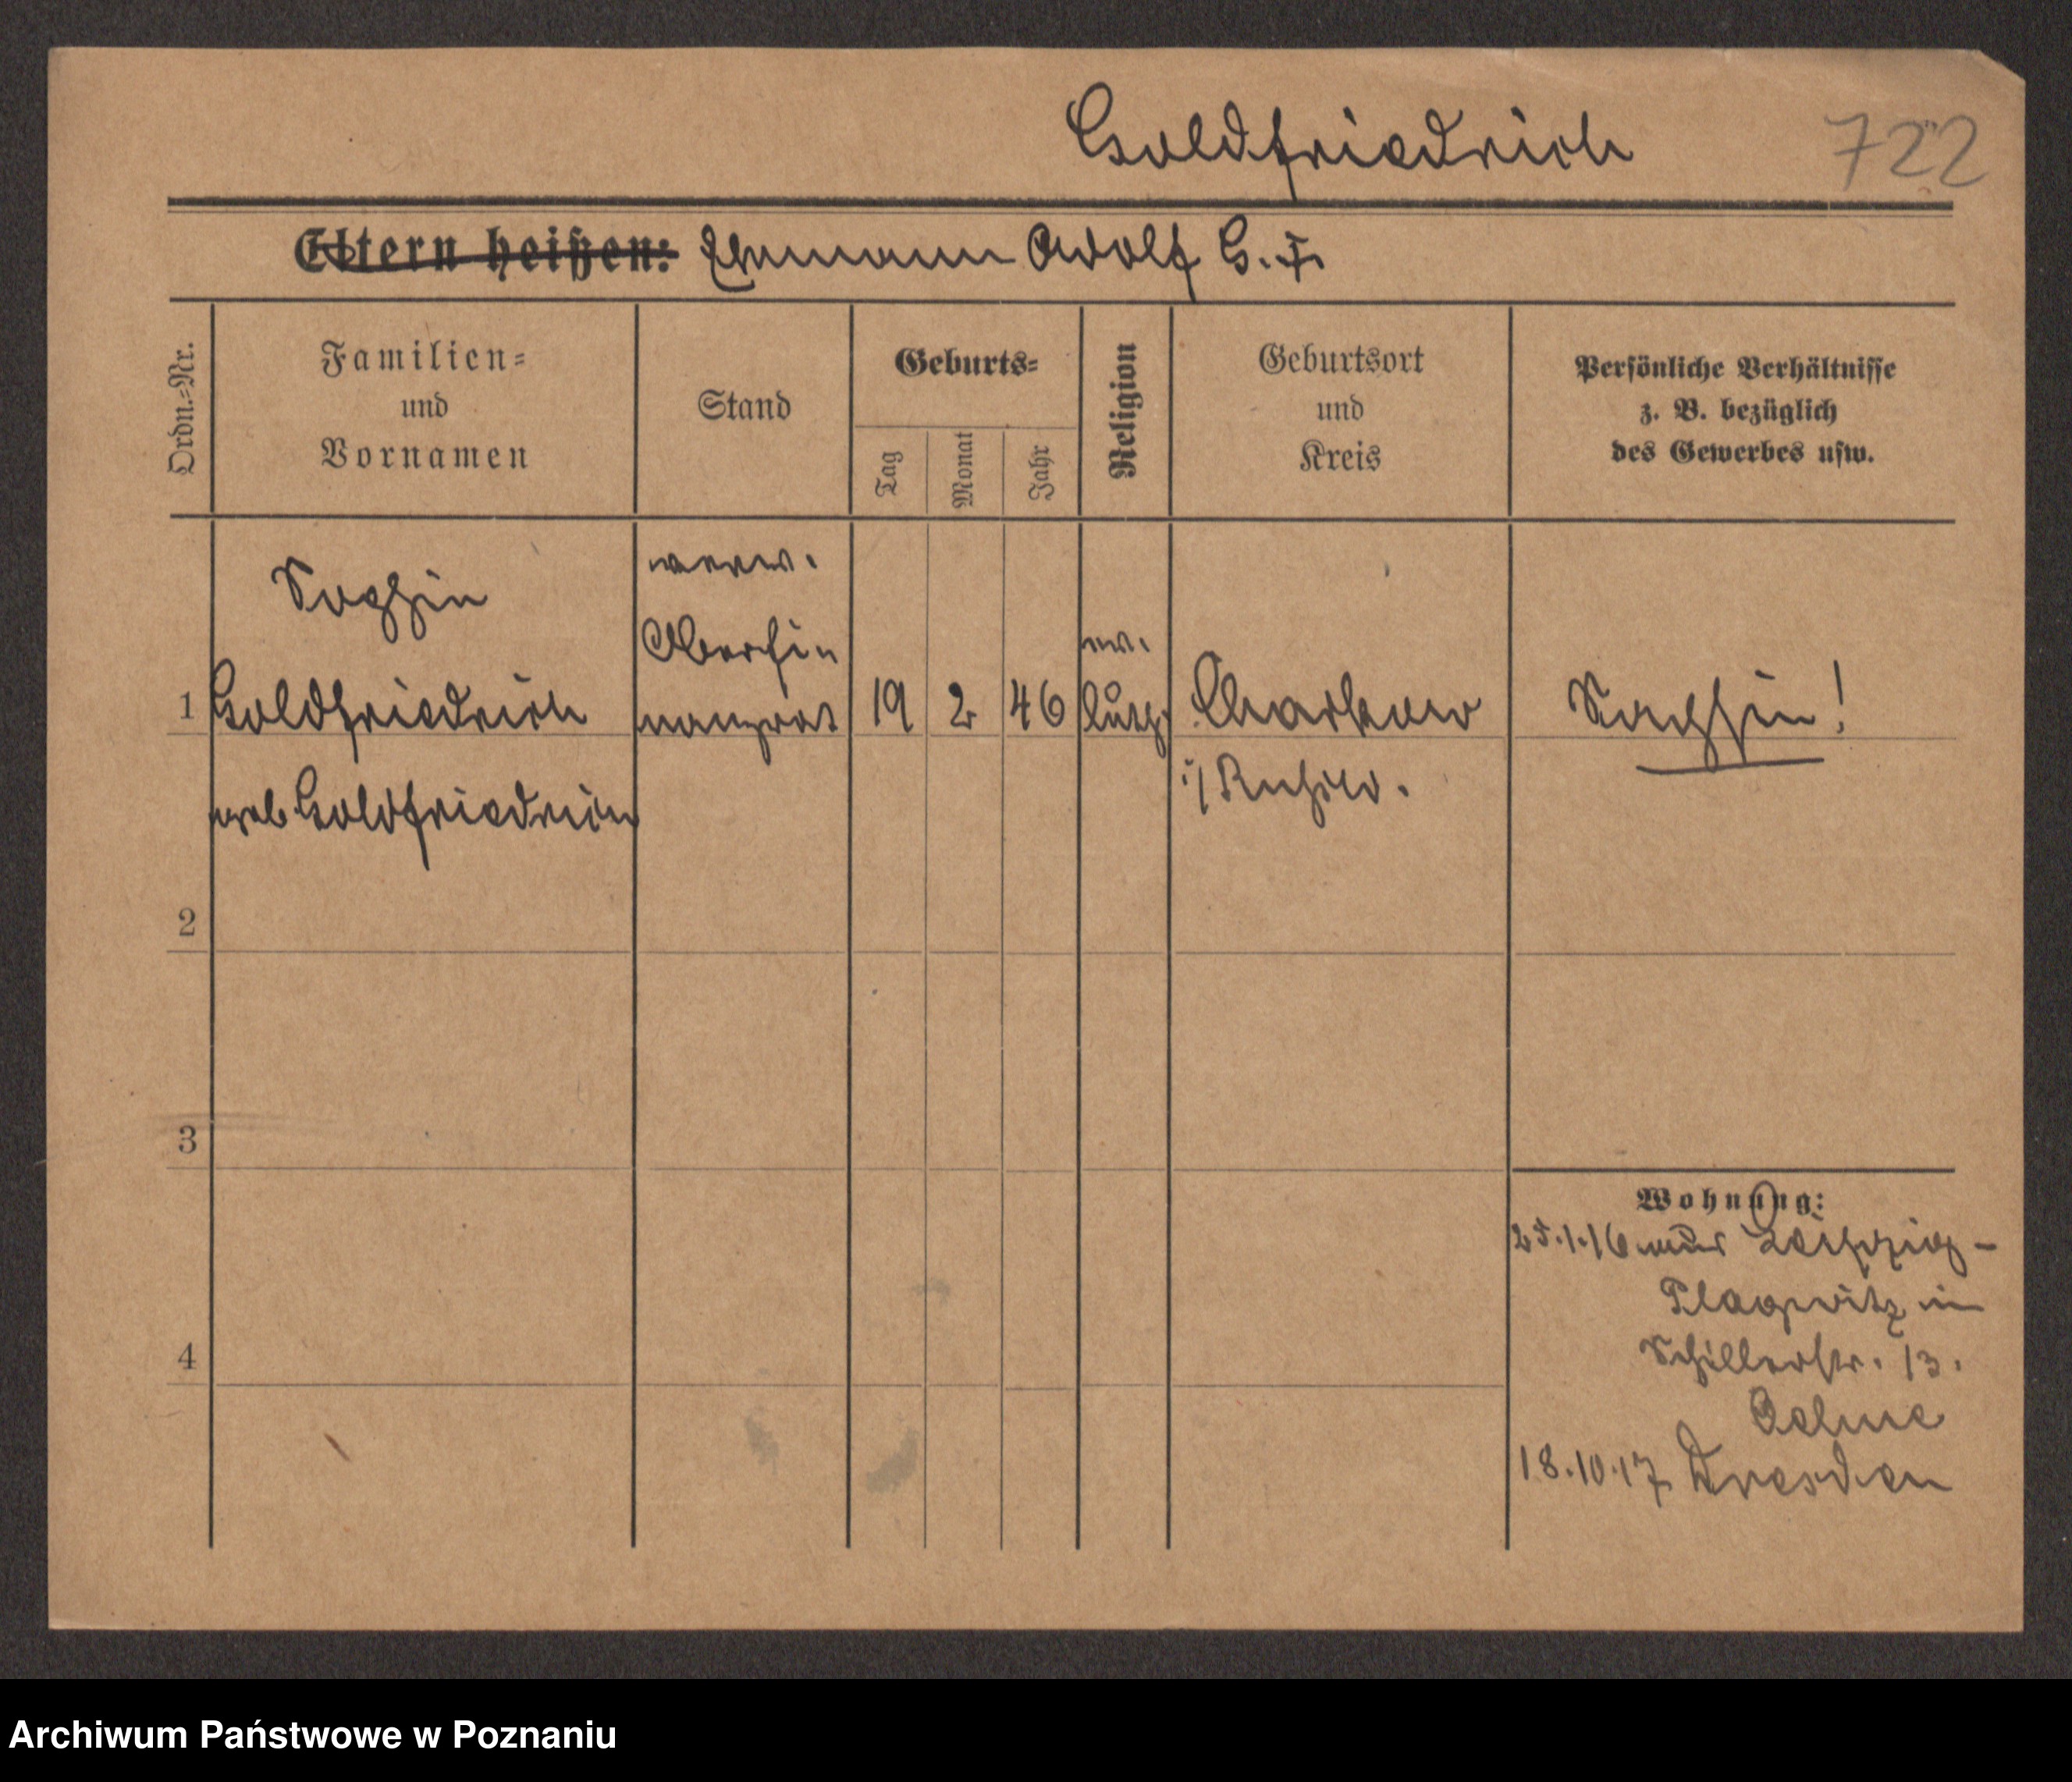 Goldfriedrich 722
Eltern heißen: Ehemann Adolf G. †
Ordn.-Nr.
Familien-
und
Vornamen
Stand
Geburts-
Tag
Monat
Jahr
Religion
Geburtsort
und
Kreis
Persönliche Verhältnisse
z. B. bezüglich
des Gewerbes usw.
Sophie
verw.
Oberfin
ev.
1 Goldfriedrich nanzrat 19 2 46 luth. Charkow
i/ Rußld.
geb Goldfriedrich
2
3
4
Wohnung:
25.1.16 nach Leipzig-
Plagwitz in
Schillerstr. 13.
Oehme
18.10.17 Dresden
Archiwum Państwowe w Poznaniu